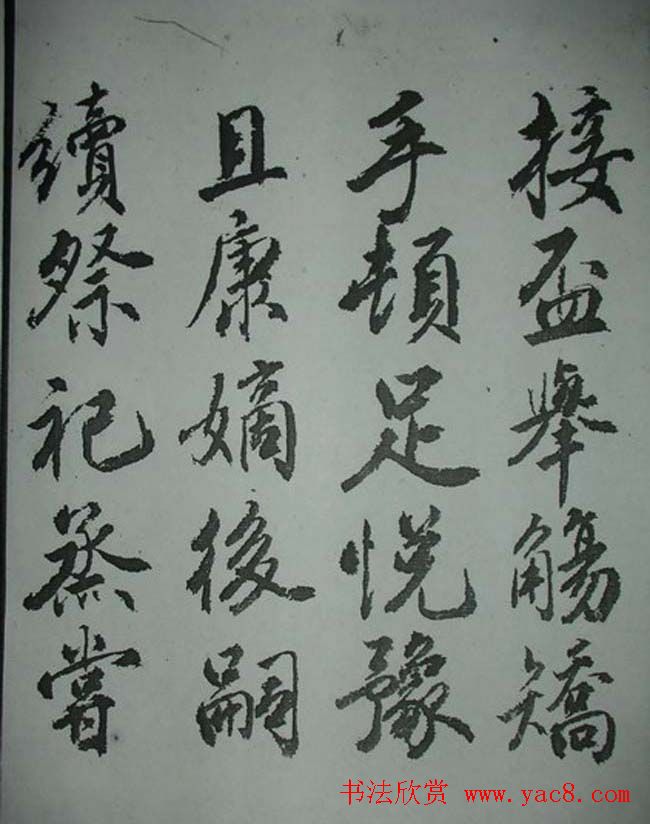 接盃舉觴矯
手頓足悅豫
且康嫡後嗣
續祭祀蒸嘗
书法欣赏 www.yac8.com